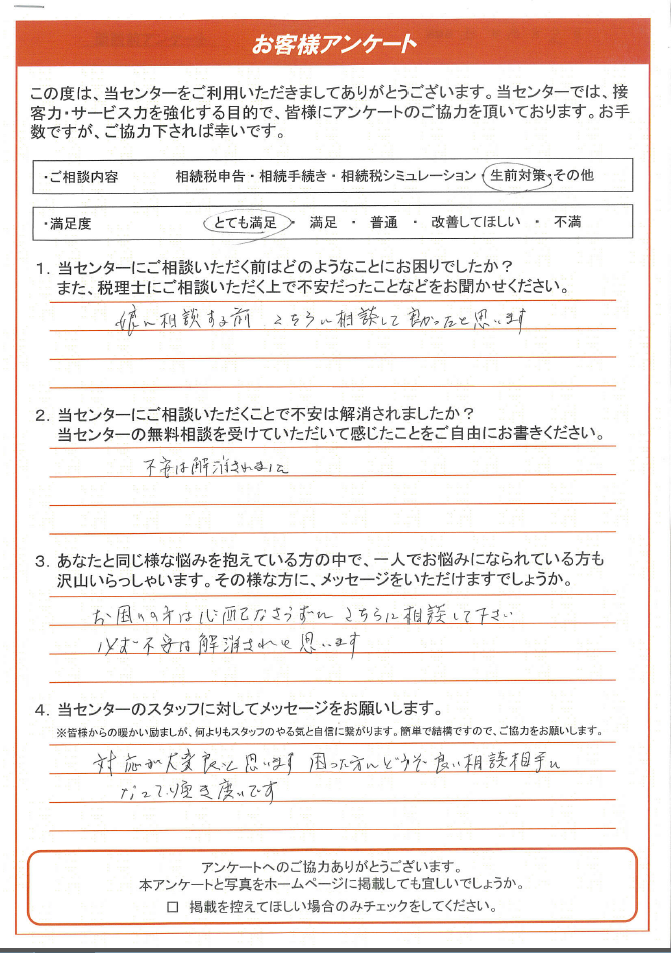 お客様アンケート
この度は、当センターをご利用いただきましてありがとうございます。当センターでは、接
客力・サービス力を強化する目的で、皆様にアンケートのご協力を頂いております。お手
数ですが、ご協力下されば幸いです。
・ご相談内容 相続税申告・相続手続き・相続税シミュレーション・生前対策・その他
・満足度 とても満足 ・ 満足 ・ 普通 ・ 改善してほしい ・ 不満
1. 当センターにご相談いただく前はどのようなことにお困りでしたか?
また、税理士にご相談いただく上で不安だったことなどをお聞かせください。
娘に相談する前 こちらに相談して良かったと思います
2. 当センターにご相談いただくことで不安は解消されましたか?
当センターの無料相談を受けていただいて感じたことをご自由にお書きください。
不安は解消されました
3. あなたと同じ様な悩みを抱えている方の中で、一人でお悩みになられている方も
沢山いらっしゃいます。その様な方に、メッセージをいただけますでしょうか。
お困りの方は心配なさらずに こちらに相談して下さい
必ず不安は解消されると思います
4. 当センターのスタッフに対してメッセージをお願いします。
※皆様からの暖かい励ましが、何よりもスタッフのやる気と自信に繋がります。簡単で結構ですので、ご協力をお願いします。
対応が大変良いと思います 困った方にどうぞ良い相談相手に
なって頂き度いです
アンケートへのご協力ありがとうございます。
本アンケートと写真をホームページに掲載しても宜しいでしょうか。
□ 掲載を控えてほしい場合のみチェックをしてください。